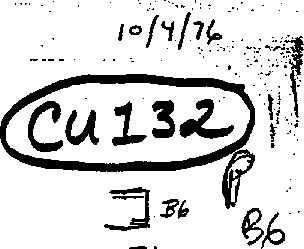 10/4/76
CU 132
P
B6
B6